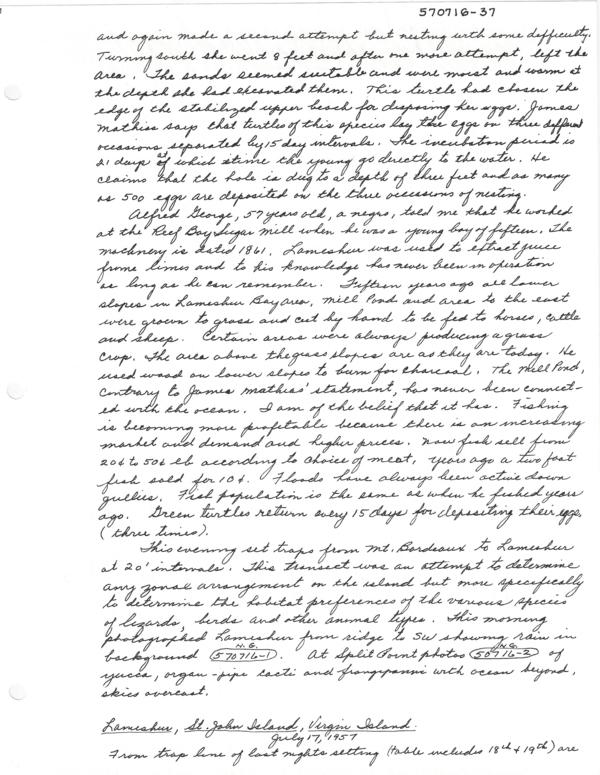 570716-37
and again made a second attempt but nesting with some difficulty.
Turning south she went 8 feet and after one more attempt, left the
area. The sands seemed suitable and were moist and warm at
the depth she had excavated them. This turtle had chosen the
edge of the stabilized upper beach for disposing her eggs. James
Mathias says that turtles of this species lay the eggs on three different
occasions separated by 15 day intervals. The incubation period is
21 days at which time the young go directly to the water. He
claims that the hole is dug to a depth of three feet and as many
as 500 eggs are deposited on the three occasions of nesting.
Alfred George, 57 years old, a negro, told me that he worked
at the Reef Bay Sugar mill when he was a young boy of fifteen. The
machinery is dated 1861. Lameshur was used to extract juice
frome limes and to his knowledge has never been in operation
as long as he can remember. Fifteen years ago all lower
slopes in Lameshur Bay area, Mill Pond and area to the east
were grown to grass and cut by hand to be fed to horses, cattle
and sheep. Certain areas were always producing a grass
crop. The area above the grass slopes are as they are today. He
used wood on lower slopes to burn for charcoal. The Mill Pond,
contrary to James Mathias' statement, has never been connect-
ed with the ocean. I am of the belief that it has. Fishing
is becoming more profitable because there is an increasing
market and demand and higher prices. Now fish sell from
20¢ to 50¢ lb according to choice of meat, years ago a two foot
fish sold for 10¢. Floods have always been active down
gullies. Fish population is the same as when he fished years
ago. Green turtles return every 15 days for depositing their eggs
(three times).
This evening set traps from Mt. Bordeaux to Lameshur
at 20' intervals. This transect was an attempt to determine
any zonal arrangement on the island but more specifically
to determine the habitat preferences of the various species
of lizards, birds and other animal types. This morning
photographed Lameshur from ridge to SW showing rain in
background N.G. (570716-1). At Split Point photos N.G. (50716-2) of
yucca, organ-pipe cacti and frangipanni with ocean beyond,
skies overcast.
Lameshur, St. John Island, Virgin Island.
July 17, 1957
From trap line of last nights setting (table includes 18th & 19th) are